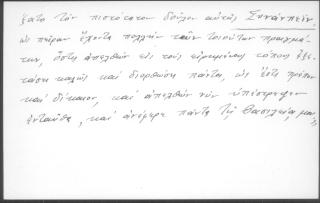 ξατο τὸν πιστότατον δοῦλον αὐτῆς Συναδηνόν,
ὡς πεῖραν ἔχοντα πολλὴν τῶν τοιούτων πραγμά-
των, ὅστις ἀπελθὼν εἰς τοὺς εἰρημένους τόπους ἐξε-
τάσῃ καλῶς καὶ διορθώσῃ πάντα, ὡς ἔστι πρέπον
καὶ δίκαιον, καὶ ἀπελθὼν νῦν ὑπέστρεψεν
ἐνταῦθα, καὶ ἀνέφερε πάντα τῇ βασιλείᾳ μου,